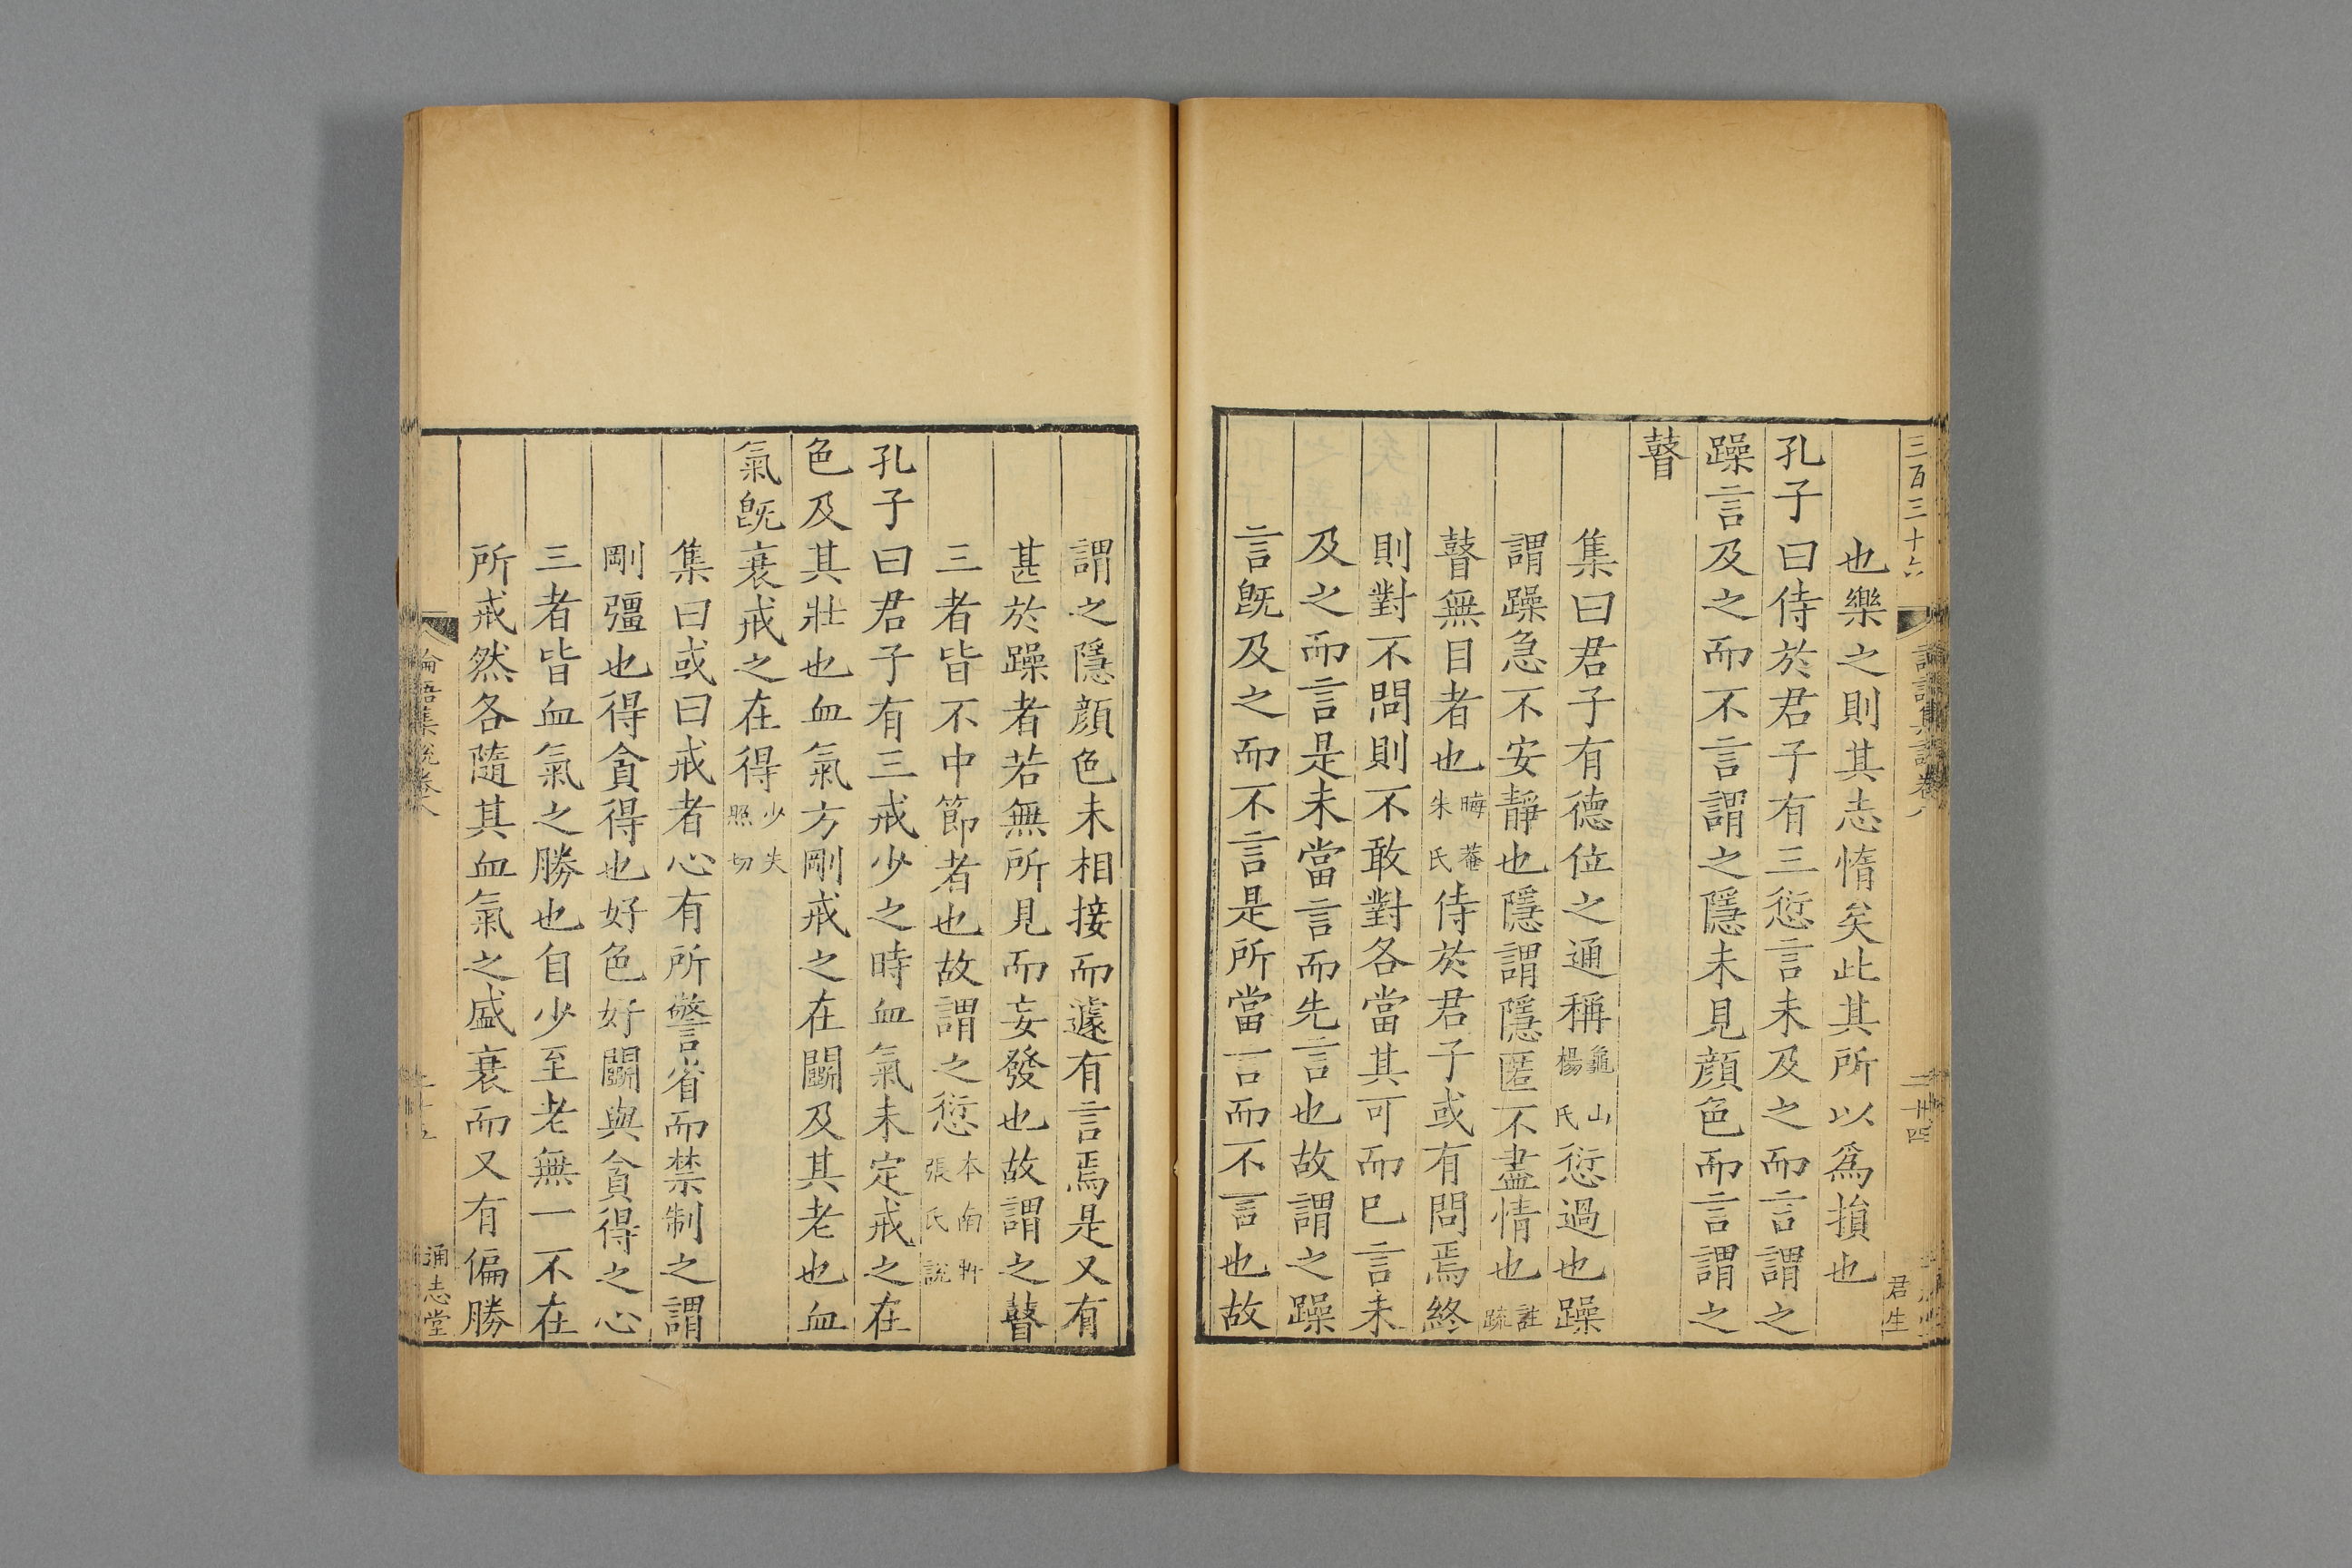 三百三十六
二十四
君生
也樂之則其志惰矣此其所以為損也
孔子曰侍於君子有三愆言未及之而言謂之
躁言及之而不言謂之隱未見顔色而言謂之
瞽
集曰君子有德位之通稱龜山楊氏愆過也躁
謂躁急不安靜也隱謂隱匿不盡情也註疏
瞽無目者也晦菴朱氏侍於君子或有問焉終
則對不問則不敢對各當其可而已言未
及之而言是未當言而先言也故謂之躁
言旣及之而不言是所當言而不言也故
謂之隱顔色未相接而遽有言焉是又有
甚於躁者若無所見而妄發也故謂之瞽
三者皆不中節者也故謂之愆本南軒張氏說
孔子曰君子有三戒少之時血氣未定戒之在
色及其壯也血氣方剛戒之在鬭及其老也血
氣旣衰戒之在得少失照切
集曰或曰戒者心有所警省而禁制之謂
剛彊也得貪得也好色好鬭與貪得之心
三者皆血氣之勝也自少至老無一不在
所戒然各隨其血氣之盛衰而又有偏勝
論語集說卷八
通志堂